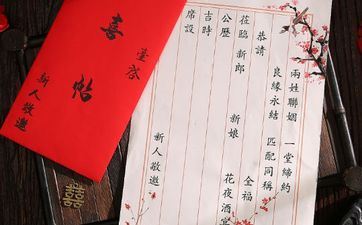 喜帖
臺啓
新人敬邀
兩姓聯姻 一堂締約
良緣永結 匹配同稱
恭請
蒞臨 新郎 新娘 全福 花夜酒宴
公歷
吉時
席設
新人敬邀
囍